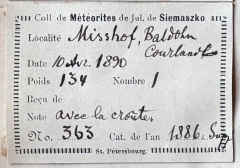 Coll. de Météorites de Jul. de Siemaszko
Localité Misshof, Baldohn
Courland
Date 10 Avr. 1890
Poids 134 Nombre 1
Reçu de
Note avec la croûte
No. 363 Cat. de l'an 1886.
St. Pétersbourg.